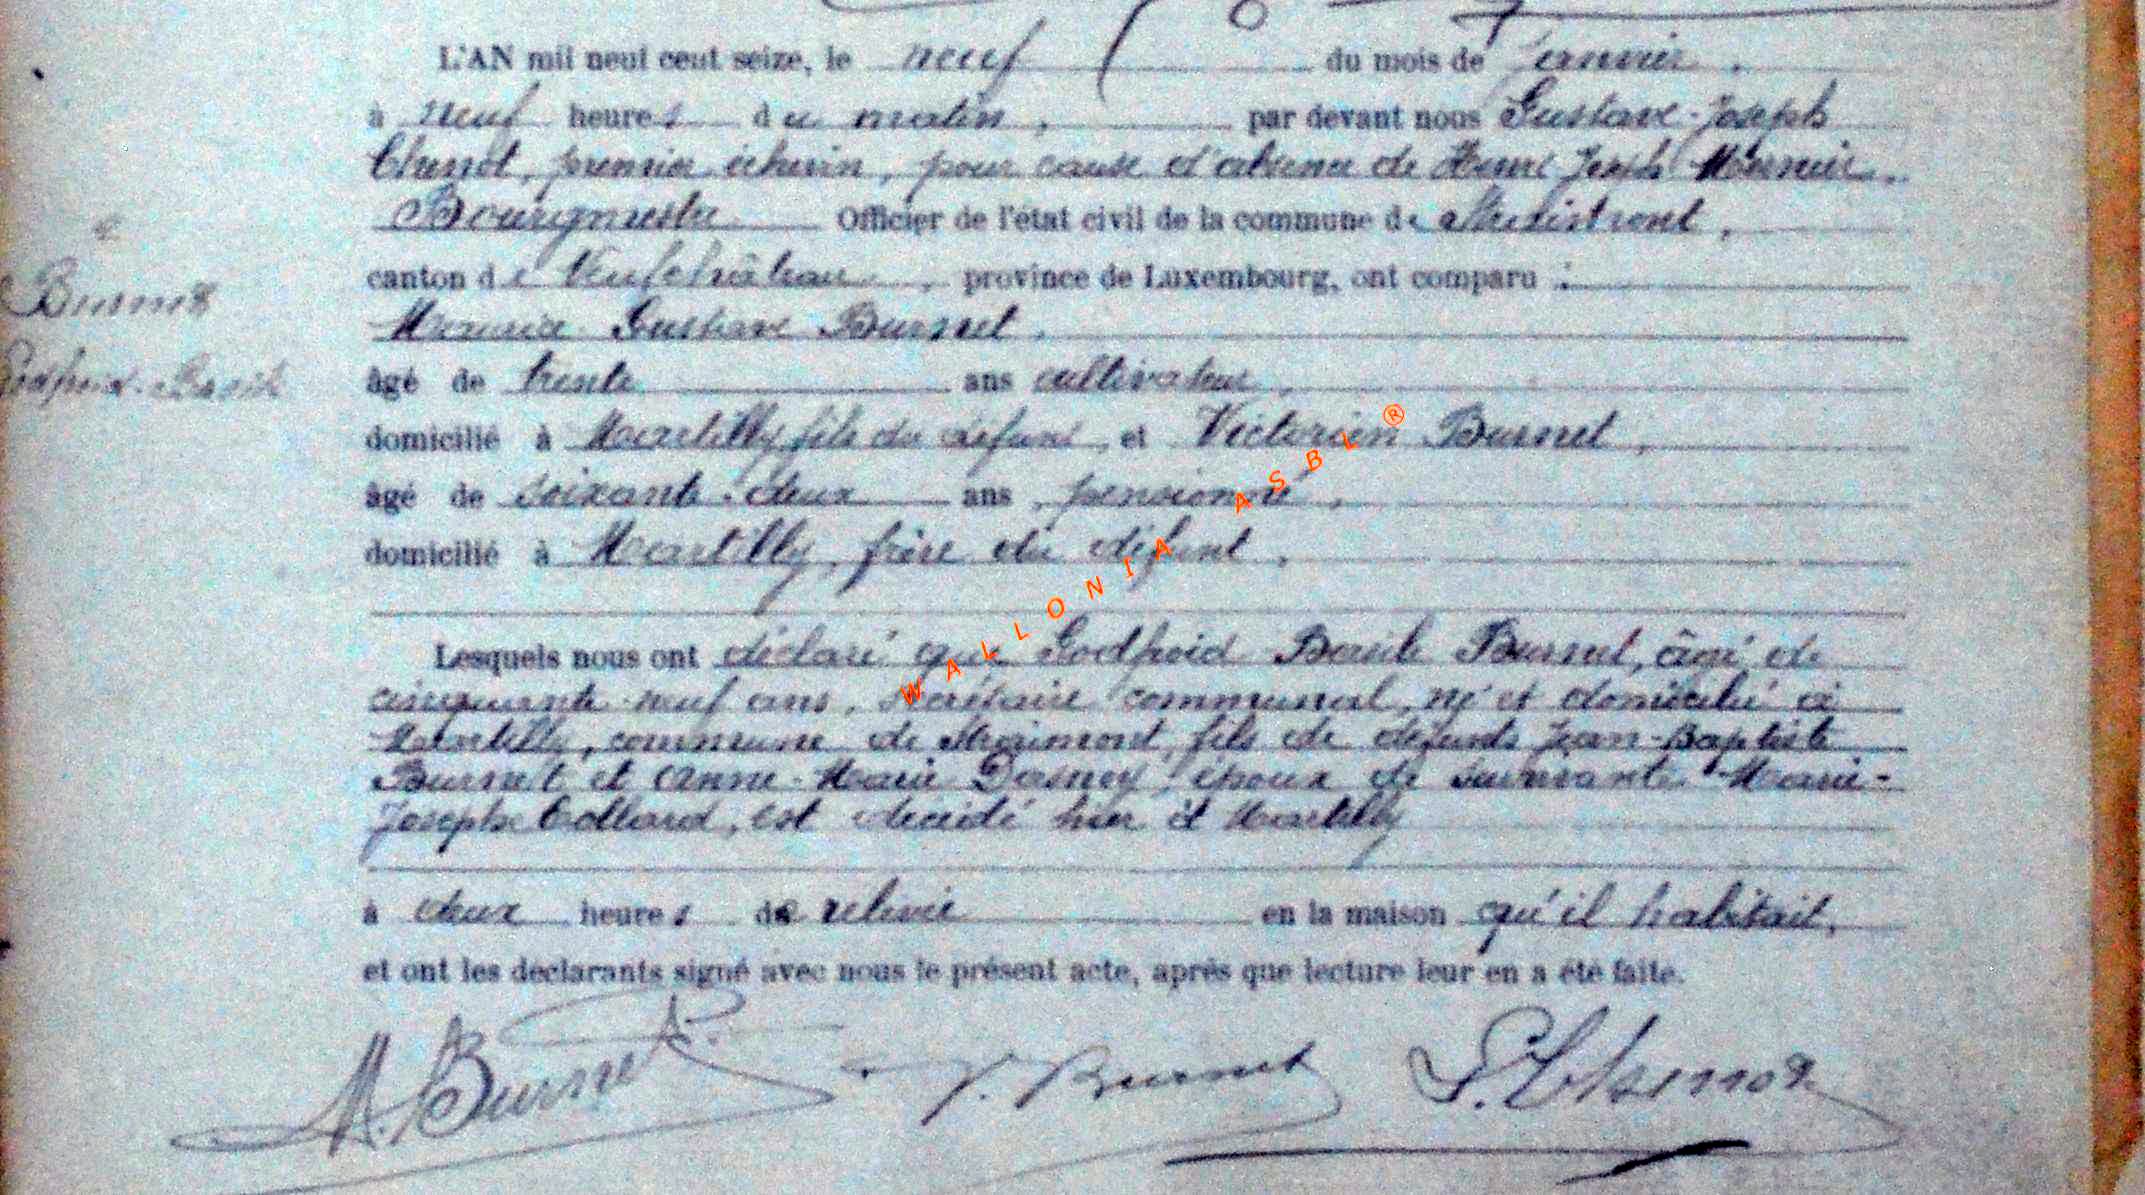 L'AN mil neuf cent seize, le neuf du mois de janvier,
à neuf heures du matin, par devant nous Gustave-Joseph
Chenot, premier échevin, pour cause d'absence de Henri Joseph Meunier,
Bourgmestre Officier de l'état civil de la commune de Straimont,
canton de Neufchâteau, province de Luxembourg, ont comparu :
Maurice Gustave Burnet,
âgé de trente ans cultivateur,
domicilié à Martilly, fils du défunt, et Victorien Burnet,
âgé de soixante-deux ans, pensionné,
domicilié à Martilly, frère du défunt,
Lesquels nous ont déclaré que Godfroid Basile Burnet, âgé de
cinquante-neuf ans, secrétaire communal, né et domicilié à
Martilly, commune de Straimont, fils de défunts Jean-Baptiste
Burnet et Anne-Marie Dasnoy, époux de survivante Marie-
Joseph Collard, est décédé hier à Martilly
à deux heures de relevée en la maison qu'il habitait,
et ont les déclarants signé avec nous le présent acte, après que lecture leur en a été faite.
Burnet
Godfroid-Basile
M. Burnet V. Burnet G. Chenot
WALLONIA ASBL ®